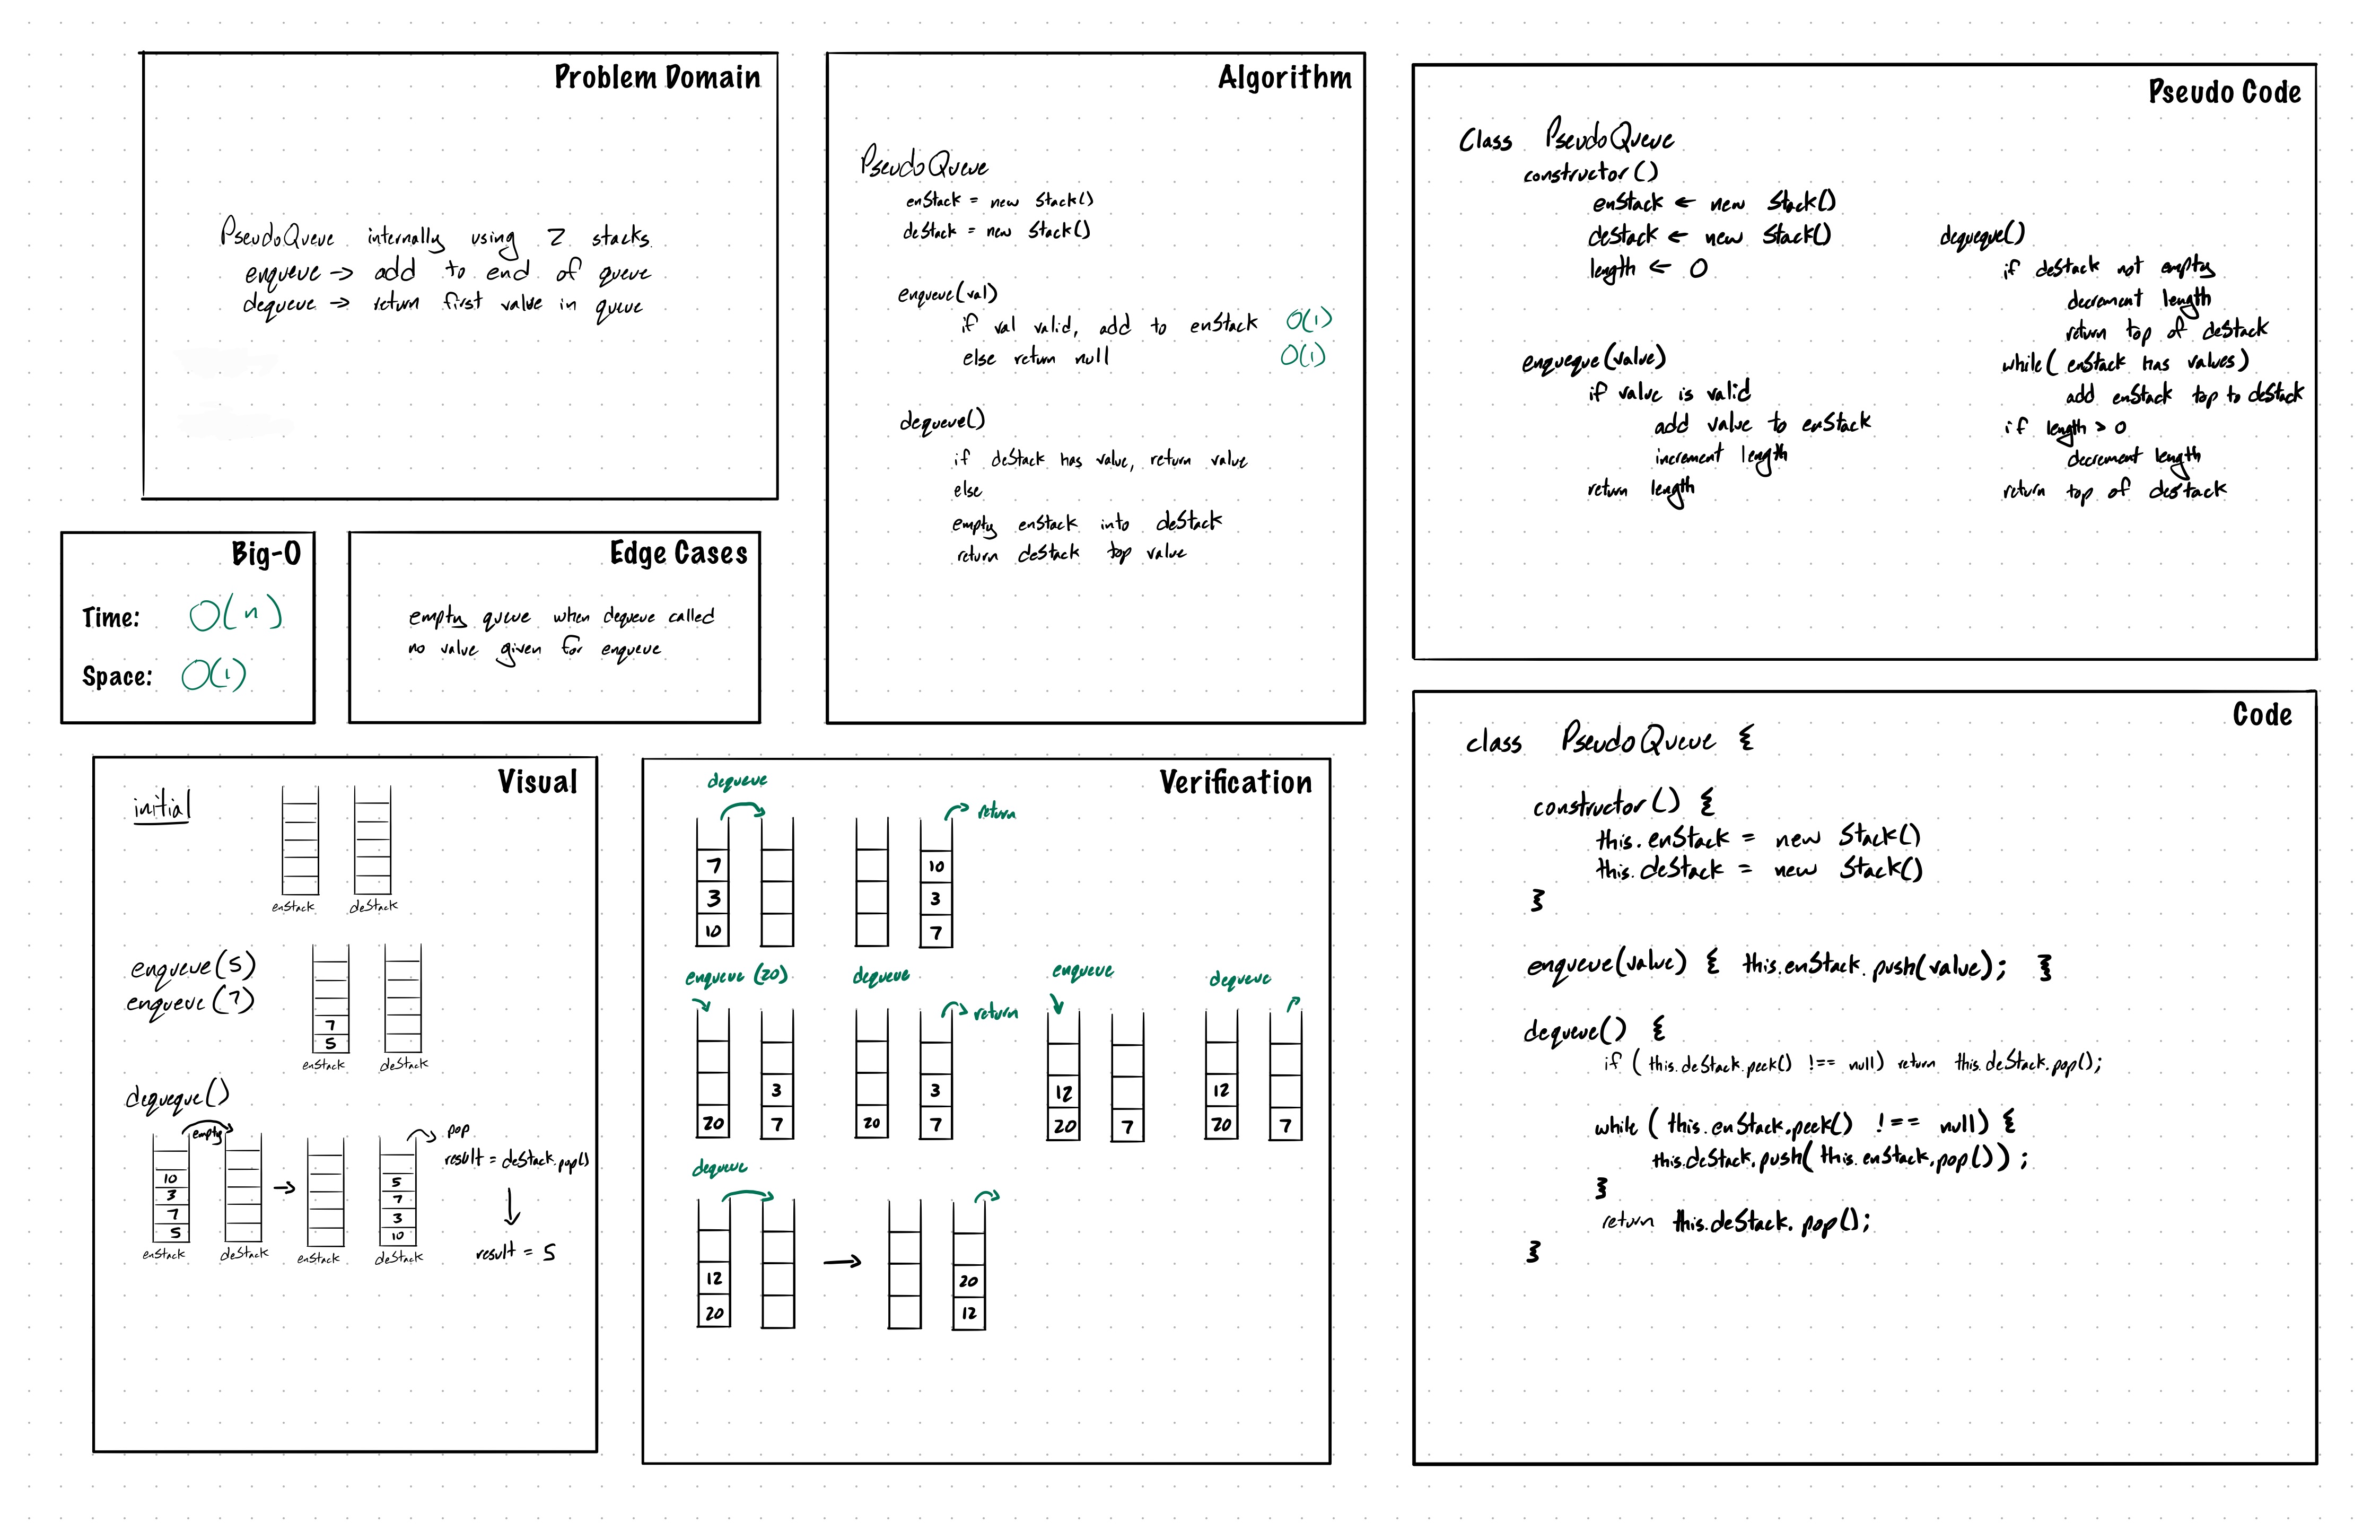 Problem Domain
PseudoQueue internally using 2 stacks.
enqueue -> add to end of queue
dequeue -> return first value in queue
Algorithm
PseudoQueue
enStack = new Stack()
deStack = new Stack()
enqueue(val)
if val valid, add to enStack O(1)
else return null O(1)
dequeue()
if deStack has value, return value
else
empty enStack into deStack
return deStack top value
Pseudo Code
Class PseudoQueue
constructor()
enStack ← new Stack()
deStack ← new Stack()
length ← 0
enqueque(value)
if value is valid
add value to enStack
increment length
return length
dequeque()
if deStack not empty
decrement length
return top of deStack
while( enStack has values)
add enStack top to deStack
if length > 0
decrement length
return top of destack
Big-O
Time: O(n)
Space: O(1)
Edge Cases
empty queue when dequeue called
no value given for enqueue
Visual
initial
enStack deStack
enqueue(5)
enqueue(7)
7
5
enStack deStack
dequeque()
empty
pop
result = deStack.pop()
10
3
7
5
5
7
3
10
enStack deStack enStack deStack
result = 5
Verification
dequeue
return
7
3
10
10
3
7
enqueue (20) dequeue enqueue dequeue
return
20
3
7
20
3
7
12
20
7
12
20
7
dequeue
12
20
20
12
Code
class PseudoQueue {
constructor() {
this.enStack = new Stack()
this.deStack = new Stack()
}
enqueue(value) { this.enStack.push(value); }
dequeue() {
if ( this.deStack.peek() !== null) return this.deStack.pop();
while ( this.enStack.peek() !== null) {
this.deStack.push( this.enStack.pop()) ;
}
return this.deStack. pop();
}